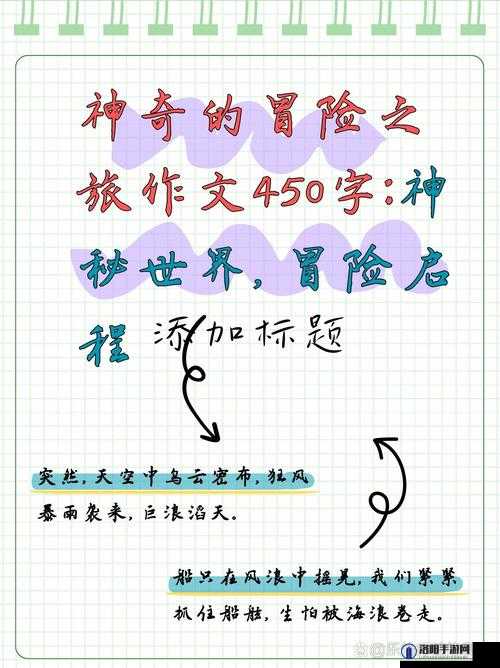 神奇的冒险之
旅作文450字:神
秘世界,冒险启
程 添加标题
突然,天空中乌云密布,狂风
暴雨袭来,巨浪滔天。
船只在风浪中摇晃,我们紧紧
抓住船舷,生怕被海浪卷走。
洛阳手游网